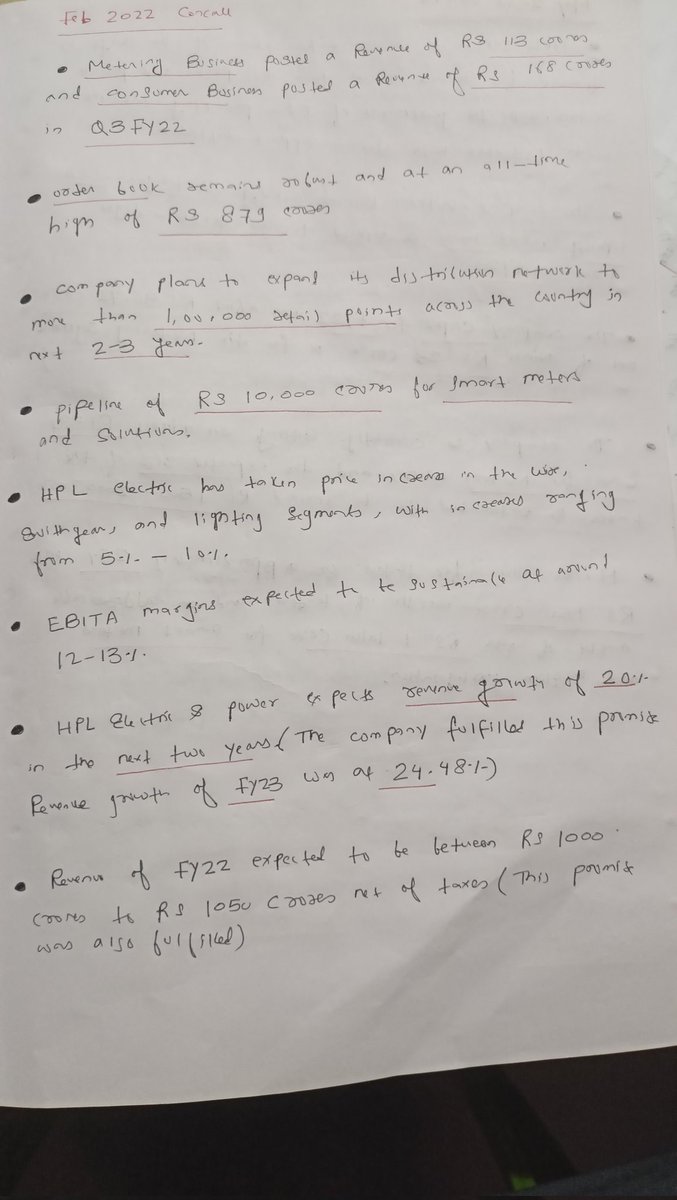 Feb 2022 Concall
• Metering Business posted a Revenue of RS 113 crores
and consumer Business posted a Revenue of Rs 168 crores
in Q3 FY22
• order book remains robust and at an all-time
high of RS 879 crores
• company plans to expand its distribution network to
more than 1,00,000 retail points across the country in
next 2-3 years.
• pipeline of RS 10,000 crores for smart meters
and solutions.
• HPL electric has taken price increase in the wire,
switchgear, and lighting segments, with increases ranging
from 5% - 10%.
• EBITA margins expected to be sustainable at around
12-13%.
• HPL Electric & power expects revenue growth of 20%
in the next two years (The company fulfilled this promise
Revenue growth of FY23 was at 24.48%)
• Revenue of FY22 expected to be between RS 1000
crores to RS 1050 crores net of taxes (This promise
was also fulfilled)